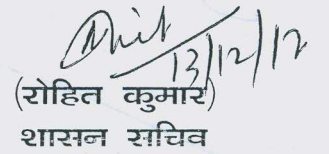 13/12/17
(रोहित कुमार)
शासन सचिव